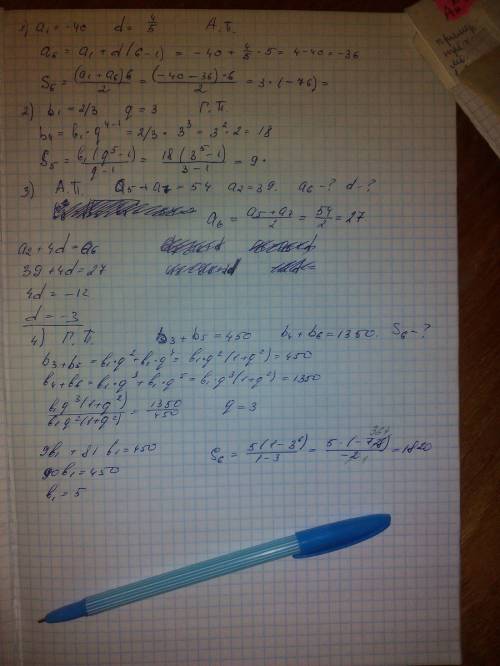 1) a₁ = -40 d = 4/5 А.П.
a₆ = a₁ + d(6-1) = -40 + 4/5 · 5 = 4-40 = -36
S₆ = (a₁ + a₆)6/2 = (-40-36)·6/2 = 3·(-76) =
2) b₁ = 2/3 q = 3 Г.П.
b₄ = b₁ · q⁴⁻¹ = 2/3 · 3³ = 3² · 2 = 18
S₅ = b₁(q⁵-1)/q-1 = 18(3⁵-1)/3-1 = 9·
3) А.П. a₅ + a₇ = 54 a₂ = 39. a₆ - ? d - ?
a₆ = a₅ + a₇/2 = 54/2 = 27
a₂ + 4d = a₆
39 + 4d = 27
4d = -12
d = -3
4) Г.П. b₃ + b₅ = 450 b₄ + b₆ = 1350. S₆ - ?
b₃ + b₅ = b₁·q² + b₁·q⁴ = b₁·q²(1+q²) = 450
b₄ + b₆ = b₁·q³ + b₁·q⁵ = b₁q³(1+q²) = 1350
b₁q³(1+q²)/b₁q²(1+q²) = 1350/450 q = 3
9b₁ + 81b₁ = 450
90b₁ = 450
b₁ = 5
S₆ = 5(1-3⁶)/1-3 = 5·(-728)/-2 = 1820
364
1